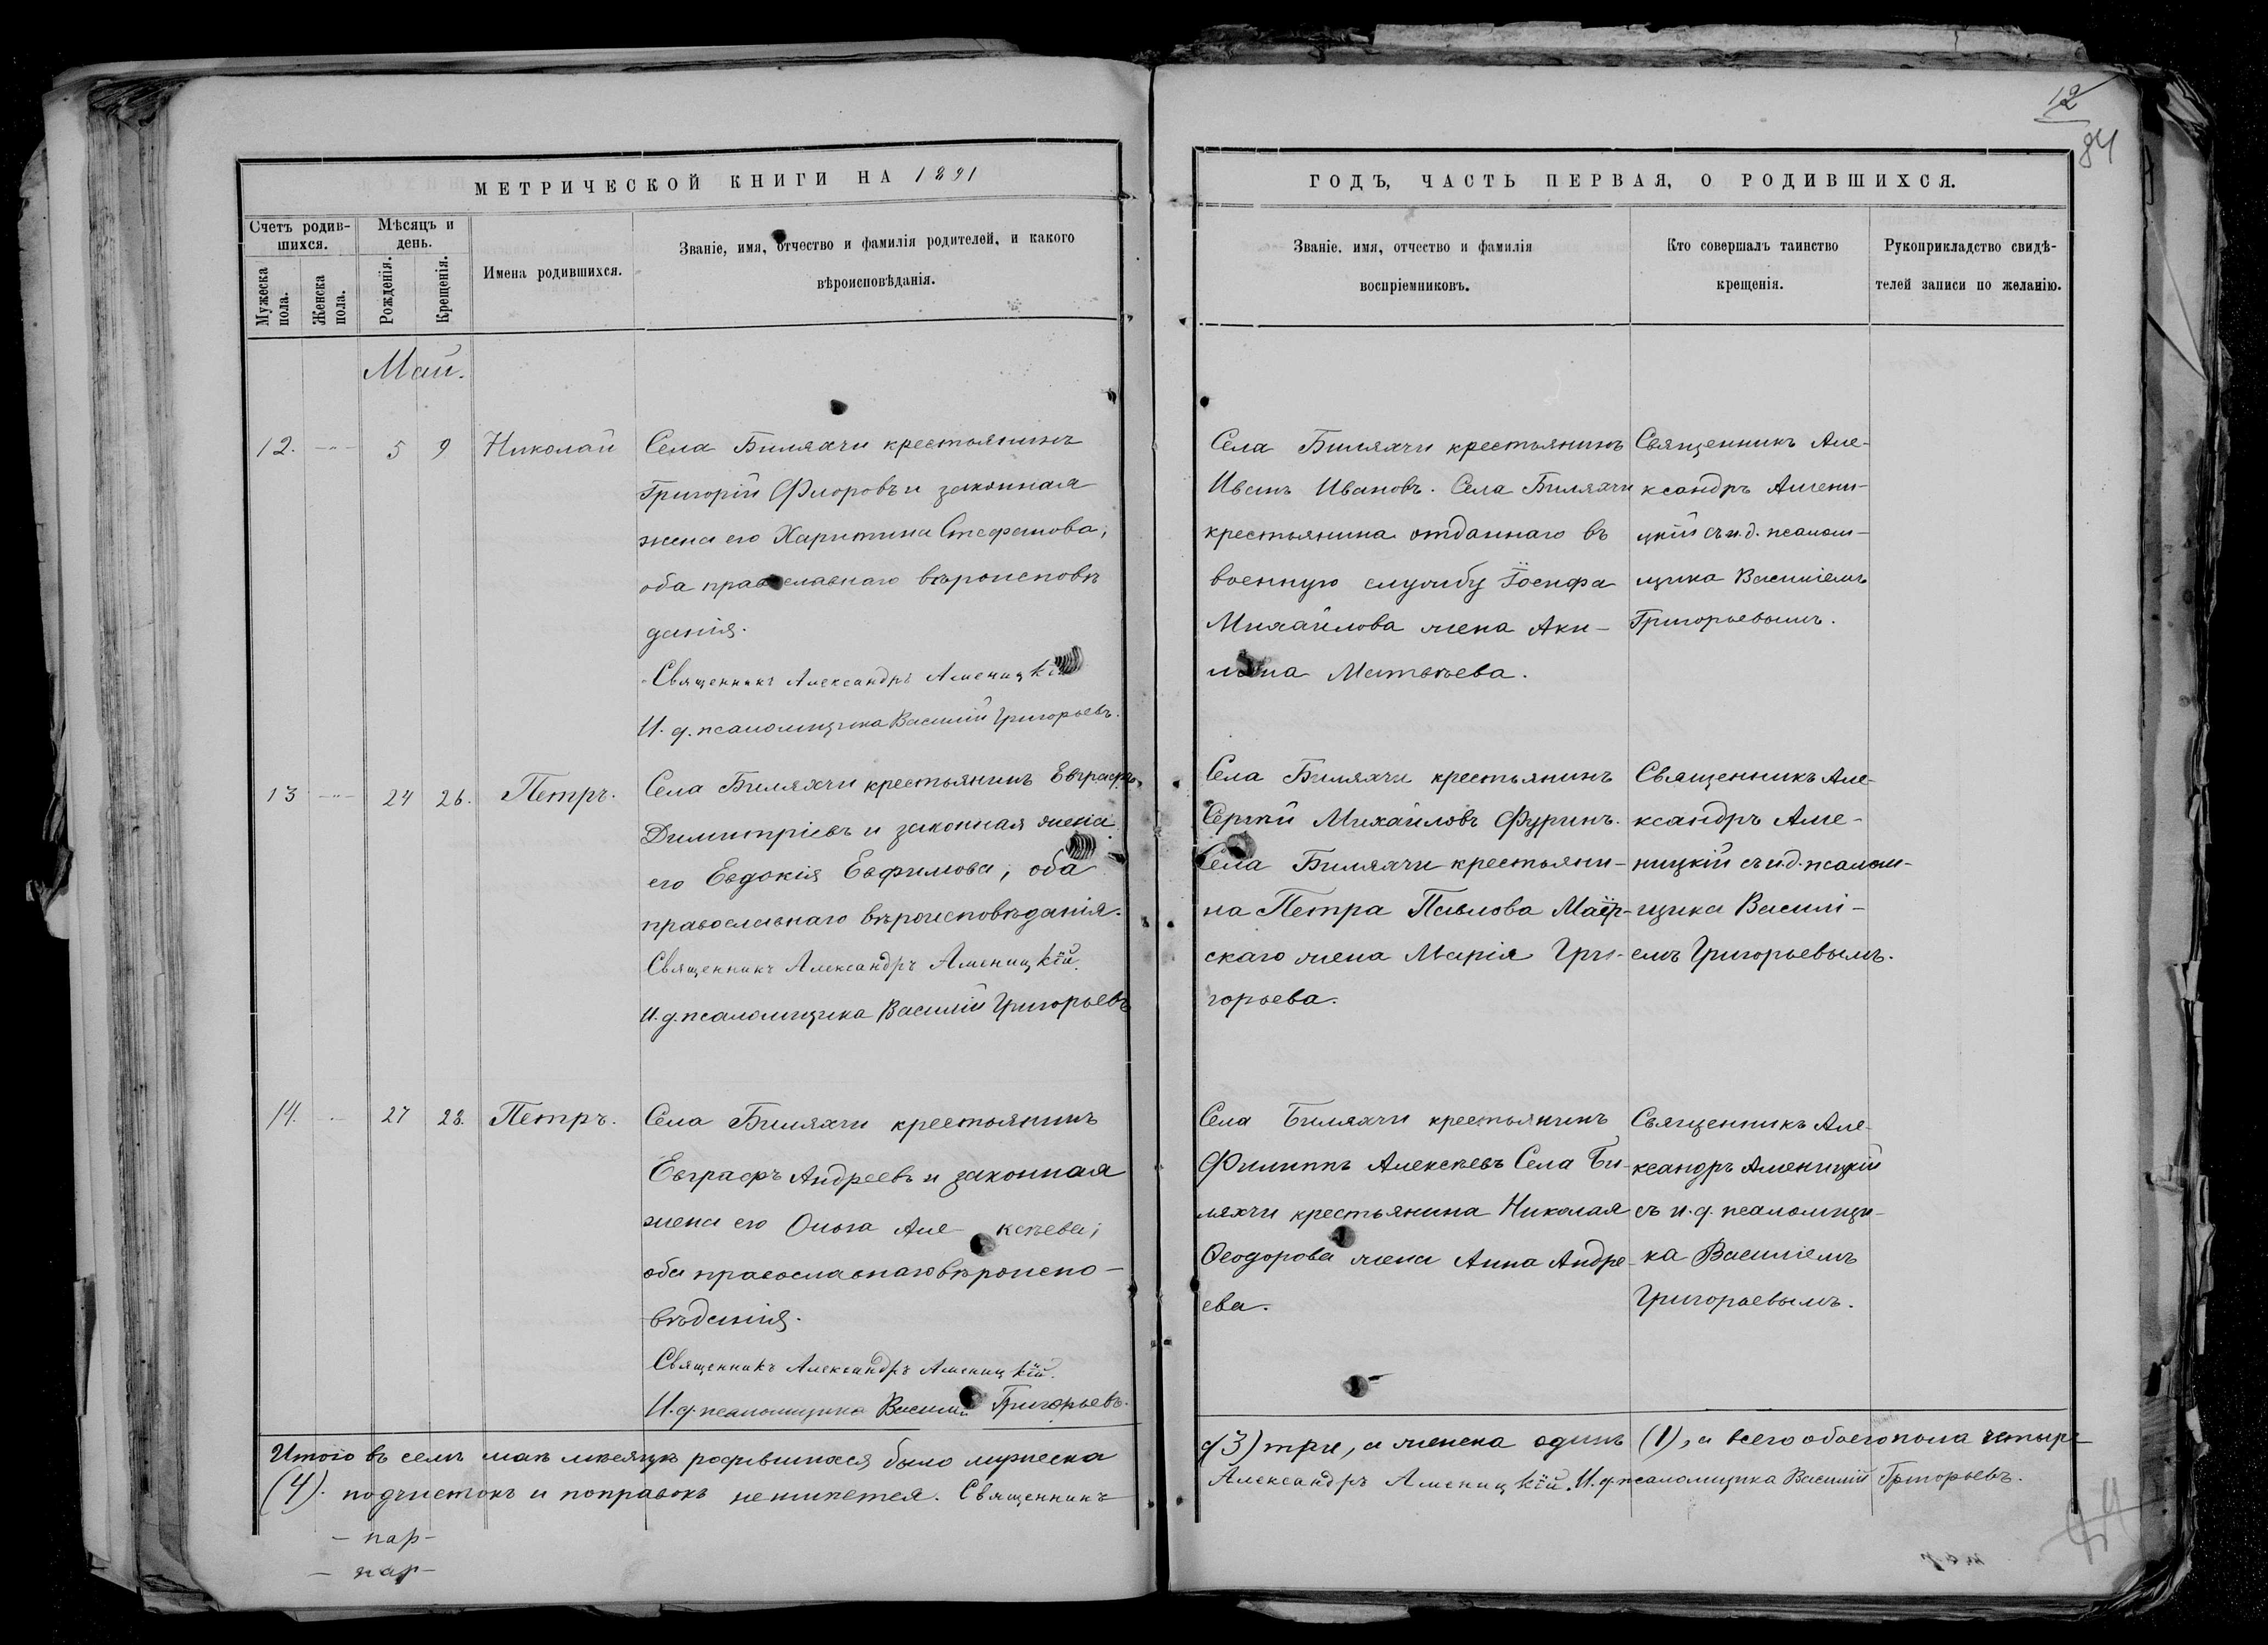 12
84
МЕТРИЧЕСКОЙ КНИГИ НА 1891
ГОДЪ, ЧАСТЬ ПЕРВАЯ, О РОДИВШИХСЯ.
Счетъ родив-
шихся.
Мужеска
пола.
Женска
пола.
Мѣсяцъ и
день.
Рожденія.
Крещенія.
Имена родившихся.
Званіе, имя, отчество и фамилія родителей, и какого
вѣроисповѣданія.
Званіе, имя, отчество и фамилія
воспріемниковъ.
Кто совершалъ таинство
крещенія.
Рукоприкладство свидѣ-
телей записи по желанію.
Май.
12. 5 9 Николай
Села Биляхчи крестьянинъ
Григорій Флоровъ и законная
жена его Харитина Стефанова,
оба православнаго вѣроисповѣ
данія.
Священникъ Александръ Аменицкій
И. д. псаломщика Василій Григорьевъ.
Села Биляхчи крестьянинъ
Иванъ Ивановъ. Села Биляхчи
крестьянина отданнаго въ
военную службу Іосифа
Михайлова жена Аки-
лина Матвѣева.
Священникъ Але-
ксандръ Амени-
цкій съ и.д. псалом-
щика Василіемъ
Григорьевымъ.
13 24 26. Петръ.
Села Биляхчи крестьянинъ Евграфъ
Димитріевъ и законная жена
его Евдокія Евфимова, оба
православнаго вѣроисповѣданія.
Священникъ Александръ Аменицкій.
И. д. псаломщика Василій Григорьевъ
Села Биляхчи крестьянинъ
Сергѣй Михайловъ Фуринъ.
Села Биляхчи крестьяни-
на Петра Павлова Маёр-
скаго жена Марія Гри-
горьева.
Священникъ Але-
ксандръ Аме-
ницкій съ и.д. псалом-
щика Василі-
емъ Григорьевымъ.
14. 27 28. Петръ.
Села Биляхчи крестьянинъ
Евграфъ Андреевъ и законная
жена его Ольга Але- ксѣева,
оба православнаго вѣроиспо-
вѣданія.
Священникъ Александръ Аменицкій.
И. д. псаломщика Василій Григорьевъ.
Села Биляхчи крестьянинъ
Филиппъ Алексѣевъ Села Би-
ляхчи крестьянина Николая
Ѳеодорова жена Анна Андре-
ева.
Священникъ Але-
ксандръ Аменицкій
съ и. д. псаломщи-
ка Василіемъ
Григорьевымъ.
Итого въ семъ маѣ мѣсяцѣ родившихся было мужеска
(3) три, а женска одинъ (1), а всего обоего пола четыре
(4). подчистокъ и поправокъ не имѣется. Священникъ
Александръ Аменицкій. И. д. псаломщика Василій Григорьевъ.